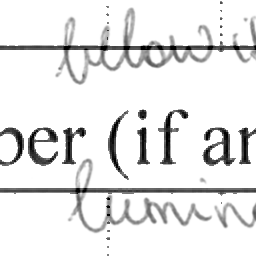 below i
ber (if an
lumin